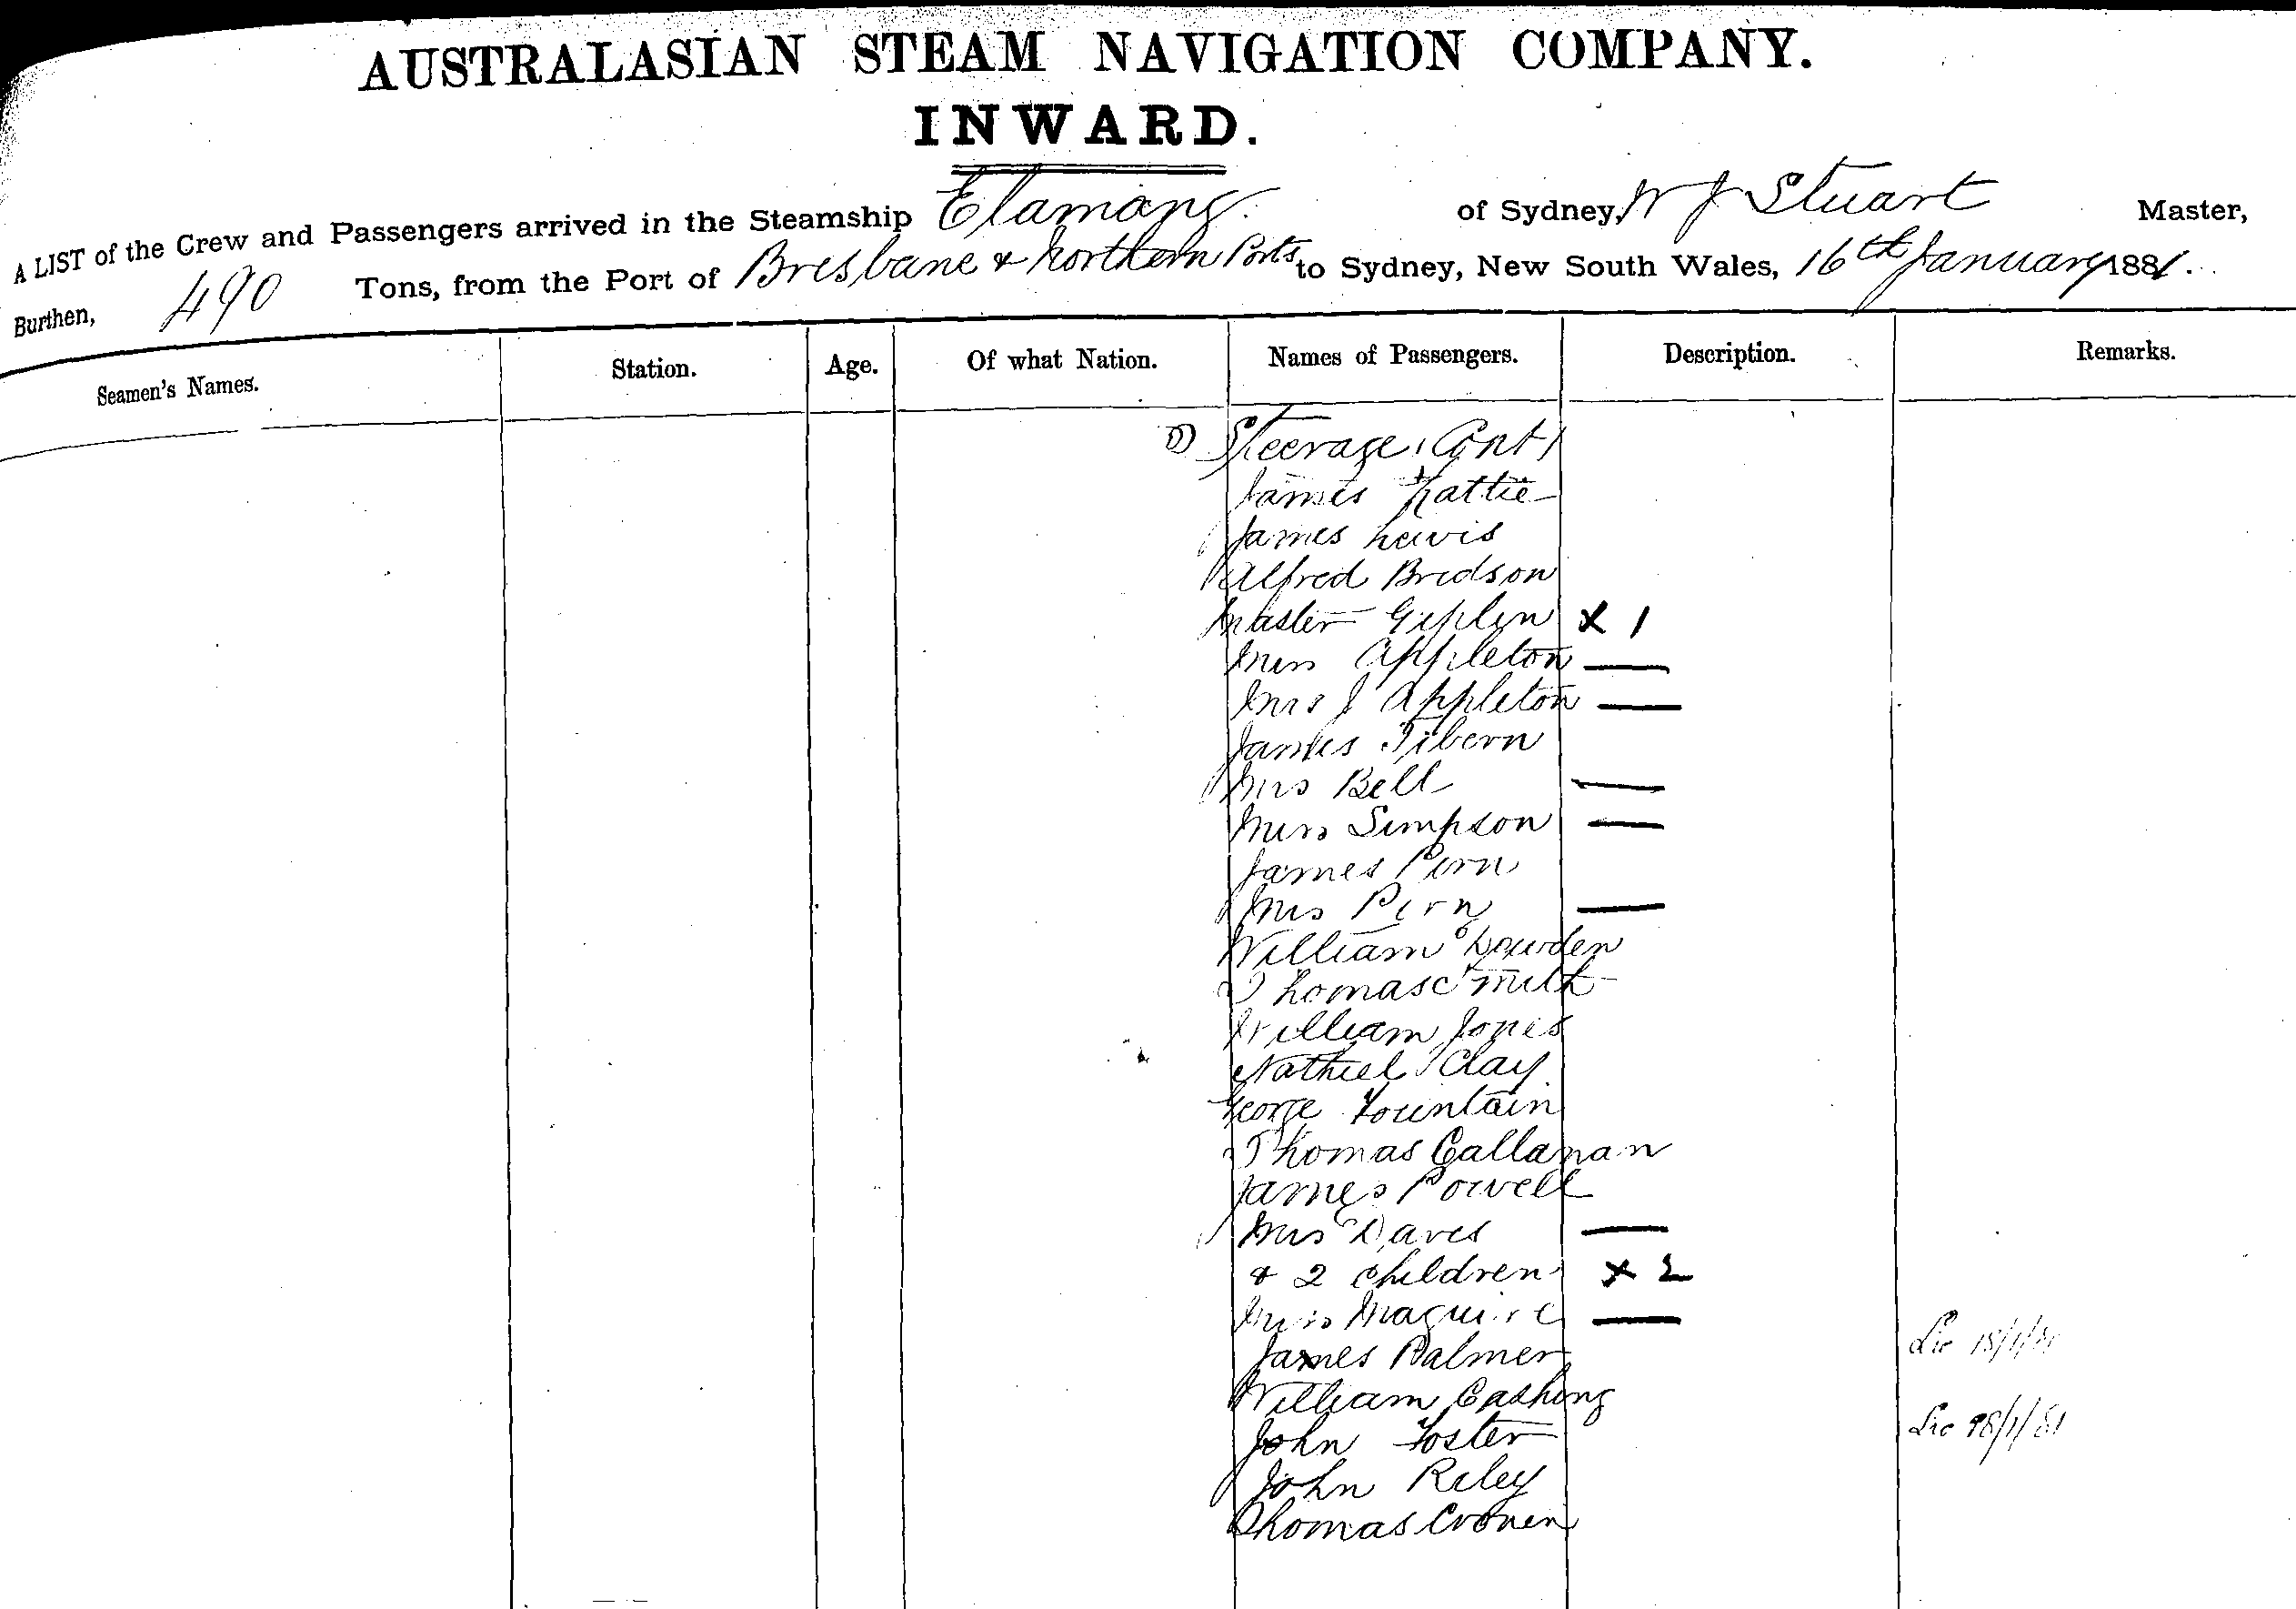 AUSTRALASIAN STEAM NAVIGATION COMPANY.
INWARD.
A LIST of the Crew and Passengers arrived in the Steamship Elamang. of Sydney, W J Stuart Master,
Burthen, 490 Tons, from the Port of Brisbane & Northern Ports to Sydney, New South Wales, 16th January 1881.
Seamen's Names. Station. Age. Of what Nation. Names of Passengers. Description. Remarks.
Steerage (Cont)
James Hattie
James Lewis
Alfred Bridson
Master X 1
Miss Appleton —
Mrs J Appleton —
James Tibern
Mrs Bell —
Miss Simpson —
James Pirn
Mrs Pirn —
William Lowden
Thomas Smith
William Jones
Nathiel Clay
George Fountain
Thomas Callanan
James Powell
Mrs Daves —
& 2 children X 2
Miss Maguire —
James Palmer
William Cashong
John Foster
John Riley
Thomas Cronen